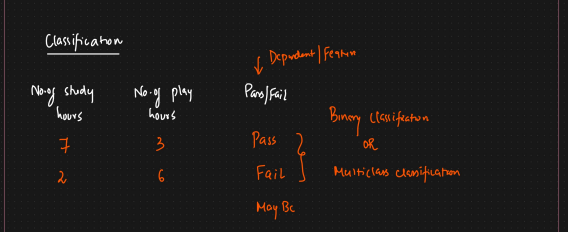 Classification
Dependent/Feature
No. of study hours
No. of play hours
Pass/Fail
7 3 Pass
2 6 Fail
May Be
Binary Classification
OR
Multiclass Classification